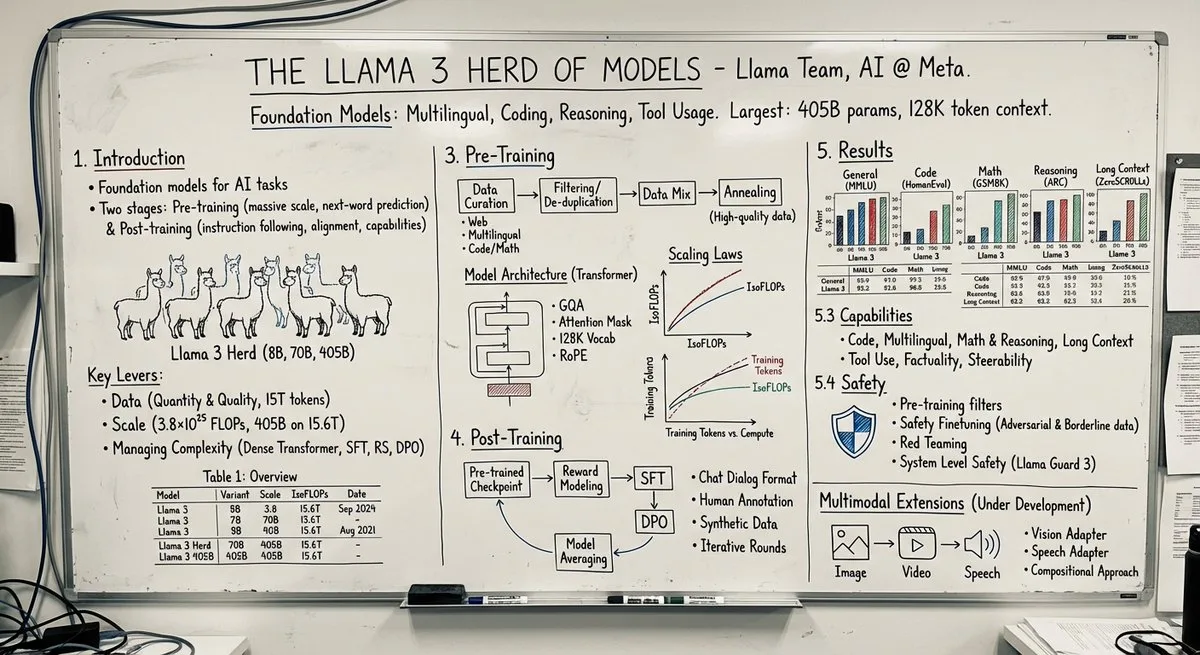 THE LLAMA 3 HERD OF MODELS – Llama Team, AI @ Meta.
Foundation Models: Multilingual, Coding, Reasoning, Tool Usage. Largest: 405B params, 128K token context.
1. Introduction
• Foundation models for AI tasks
• Two stages: Pre-training (massive scale, next-word prediction)
& Post-training (instruction following, alignment, capabilities)
Llama 3 Herd (8B, 70B, 405B)
Key Levers:
• Data (Quantity & Quality, 15T tokens)
• Scale (3.8×10²⁵ FLOPs, 405B on 15.6T)
• Managing Complexity (Dense Transformer, SFT, RS, DPO)
Table 1: Overview
Model Variant Scale IsoFLOPs Date
Llama 3 3.8 15.6T Sep 2024
Llama 3 70B
Llama 3 15.6T Aug 2021
Llama 3 Herd 70B 405B 15.6T –
Llama 3 405B 405B 15.6T –
3. Pre-Training
Data Curation
Filtering/ De-duplication
Data Mix
Annealing
(High-quality data)
• Web
• Multilingual
• Code/Math
Model Architecture (Transformer)
• GQA
• Attention Mask
• 128K Vocab
• RoPE
Scaling Laws
IsoFLOPs
IsoFLOPs
IsoFLOPs
Training Tokens
IsoFLOPs
Training Tokens vs. Compute
4. Post-Training
Pre-trained Checkpoint
Reward Modeling
SFT
DPO
Model Averaging
• Chat Dialog Format
• Human Annotation
• Synthetic Data
• Iterative Rounds
5. Results
General (MMLU)
Code (HumanEval)
Math
Reasoning (ARC)
Long Context
Llama 3
Llama 3
Llama 3
Llama 3
MMLU Code Math
General
Llama 3
MMLU Code Math
Code
Reasoning
Long Context
5.3 Capabilities
• Code, Multilingual, Math & Reasoning, Long Context
• Tool Use, Factuality, Steerability
5.4 Safety
• Pre-training filters
• Safety Finetuning (Adversarial & Borderline data)
• Red Teaming
• System Level Safety (Llama Guard 3)
Multimodal Extensions (Under Development)
Image
Video
Speech
• Vision Adapter
• Speech Adapter
• Compositional Approach